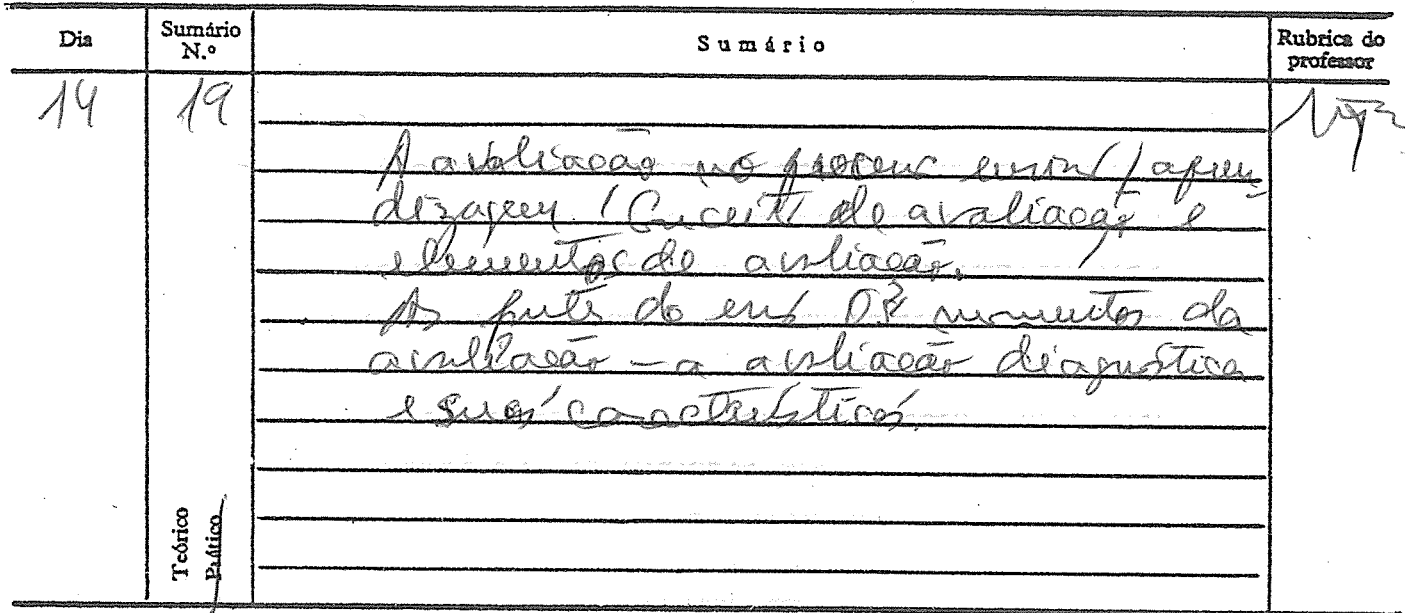 Dia
Sumário N.º
Sumário
Rubrica do professor
14
19
A avaliação no processo ensino / apren-
dizagem. Conceito de avaliação e
elementos de avaliação.
As do momentos da
avaliação – a avaliação diagnóstica
e suas características.
Teórico
Prático